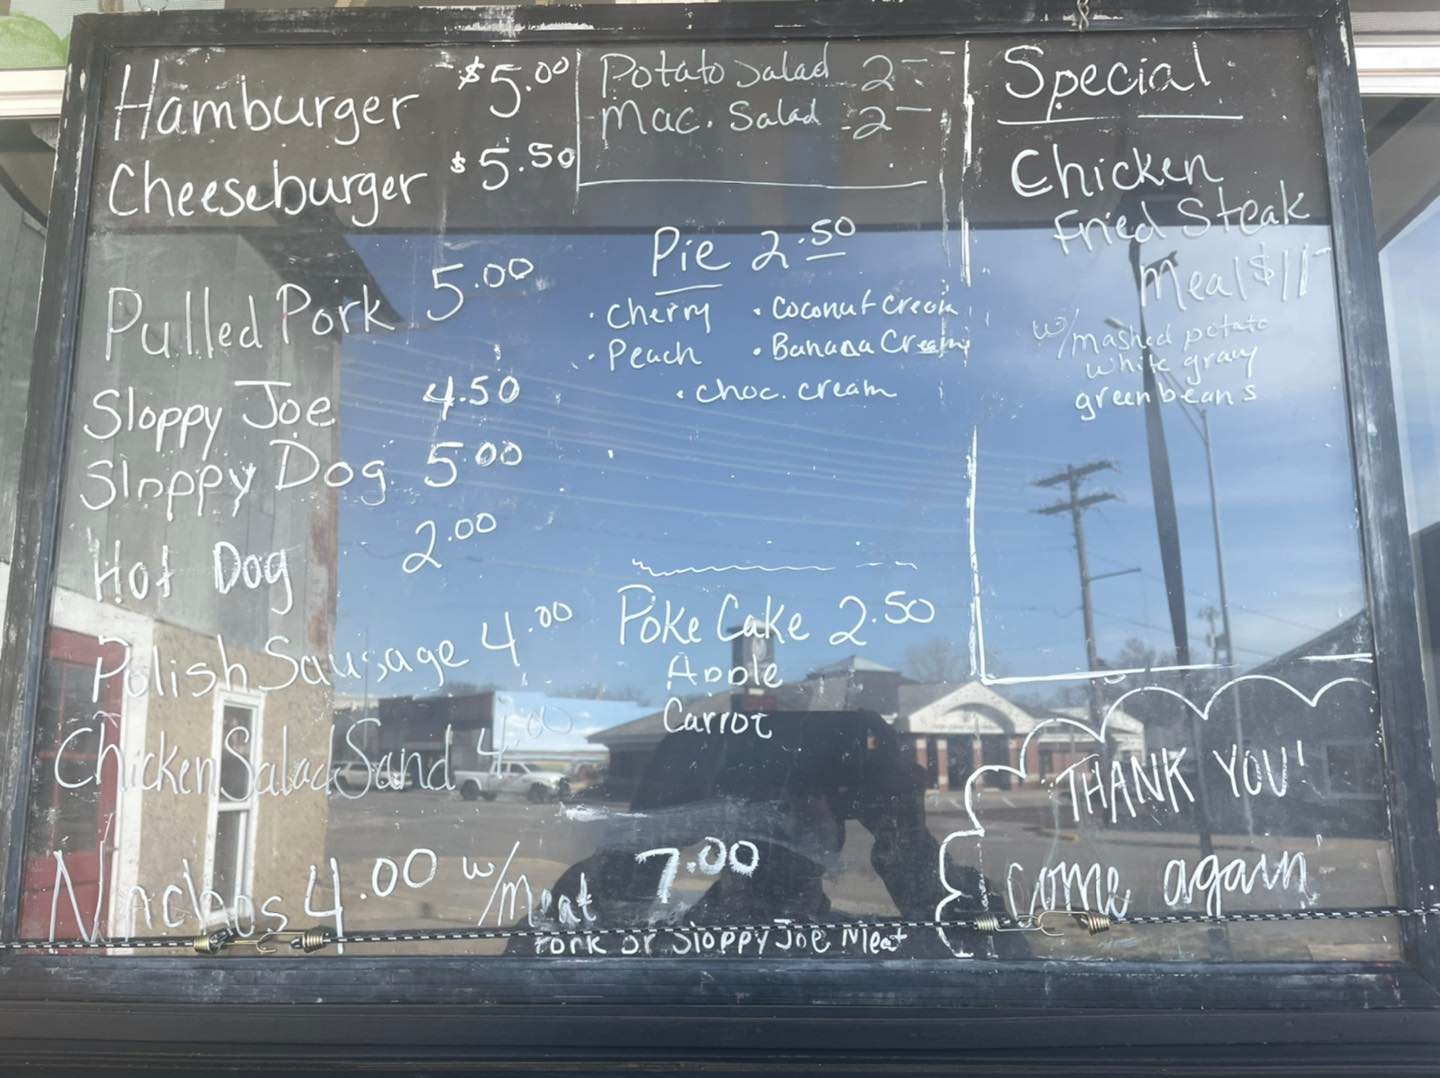 Hamburger $5.00
Cheeseburger $5.50
Pulled Pork 5.00
Sloppy Joe 4.50
Sloppy Dog 5.00
Hot Dog 2.00
Polish Sausage 4.00
Chicken Salad Sand 4.00
Nachos 4.00 w/meat 7.00
Pork or Sloppy Joe Meat
Potato Salad 2-
Mac. Salad -2-
Pie 2.50
• Cherry • Coconut Cream
• Peach • Banana Cream
• choc. cream
Poke Cake 2.50
Apple
Carrot
Special
Chicken
Fried Steak
Meal $11-
w/mashed potato
white gravy
green beans
THANK YOU!
come again!